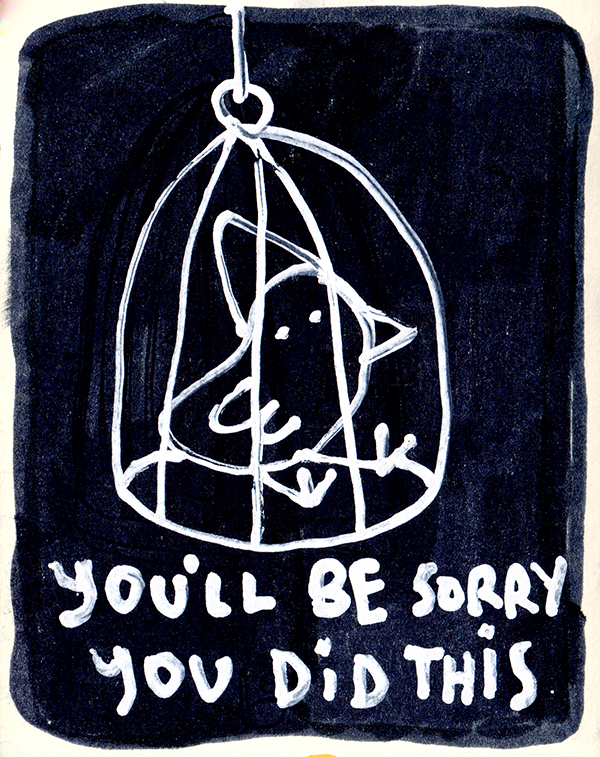 YOU'LL BE SORRY
YOU DiD THiS